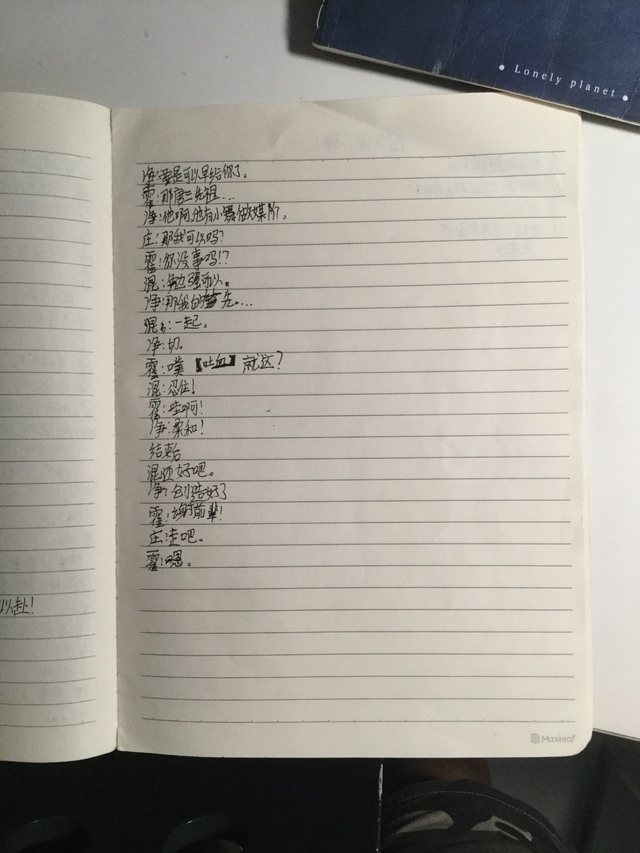 Lonely planet
净:要是可以早给你了。
霍:那唐三先祖...
净:他啊,他有小舞做媒介,
庄:那我可以吗?
霍:你没事吗!?
混:勉强可以。
净:那我的首先。...
混:一起。
净:切。
霍:噗【吐血】就这?
混:忍住!
霍:哇啊!
净:柔和!
结束后
混:还好吧。
净:创造好了
霍:谢谢前辈!
庄:走吧。
霍:嗯。
以赴!
Maxleaf